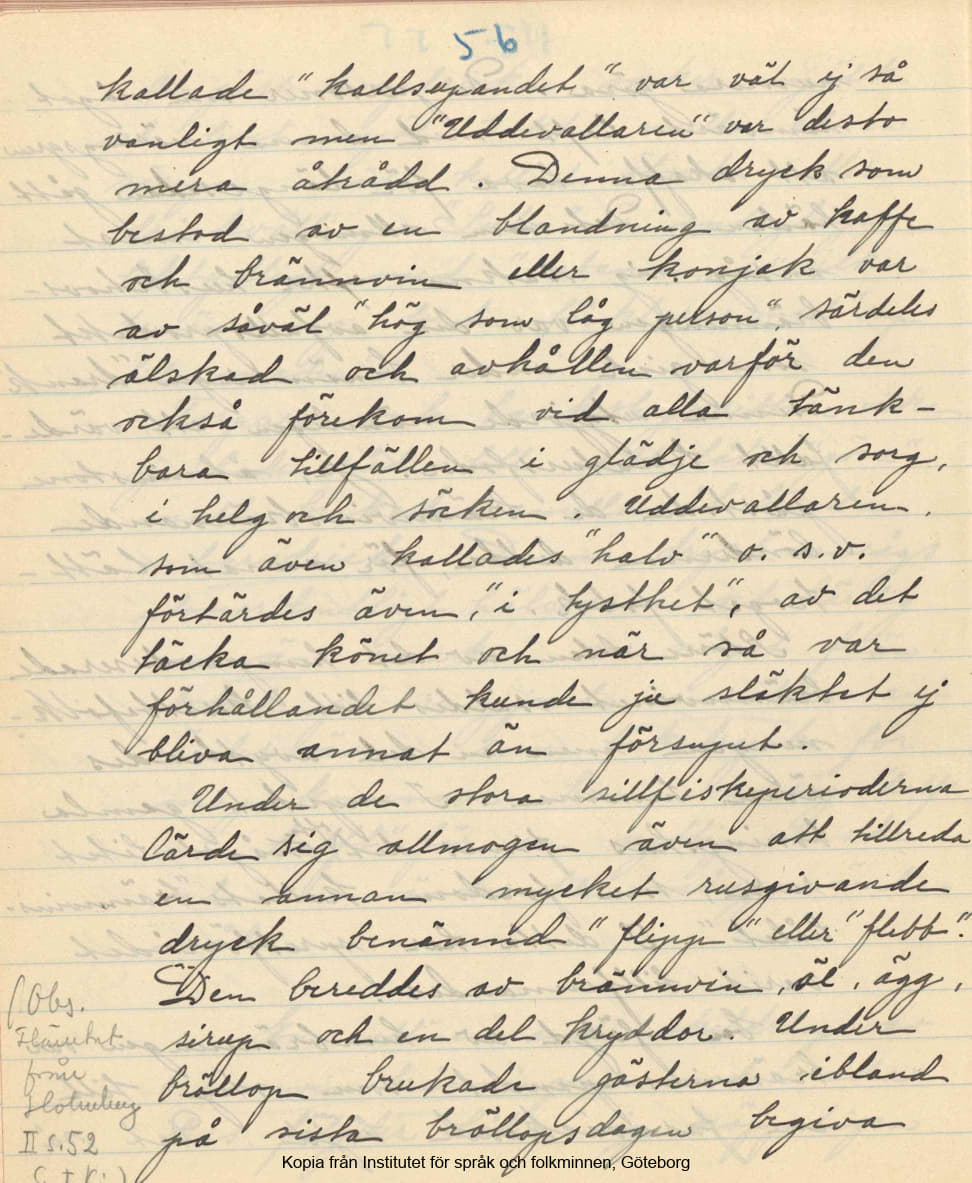 56
kallade "kallsupandet" var väl ej så
vanligt men "Uddevallaren" var desto
mera åtrådd. Denna dryck som
bestod av en blandning av kaffe
och brännvin eller konjak var
av såväl "hög som låg person", särdeles
älskad och avhållen varför den
också förekom vid alla tänk-
bara tillfällen i glädje och sorg,
i helg och söcken. Uddevallaren,
som även kallades "halv" o.s.v.
förtärdes även, "i tysthet", av det
täcka könet och när så var
förhållandet kunde ju släktet ej
bliva annat än försupet.
Under de stora sillfiskeperioderna
lärde sig allmogen även att tillreda
en annan mycket rusgivande
dryck benämnd "flipp" eller "flebb".
Den bereddes av brännvin, öl, ägg,
sirup och en del kryddor. Under
bröllop brukade gästerna ibland
på sista bröllopsdagen begiva
(Obs.
Hämtat
från
Holmberg
II s. 52
Kopia från Institutet för språk och folkminnen, Göteborg